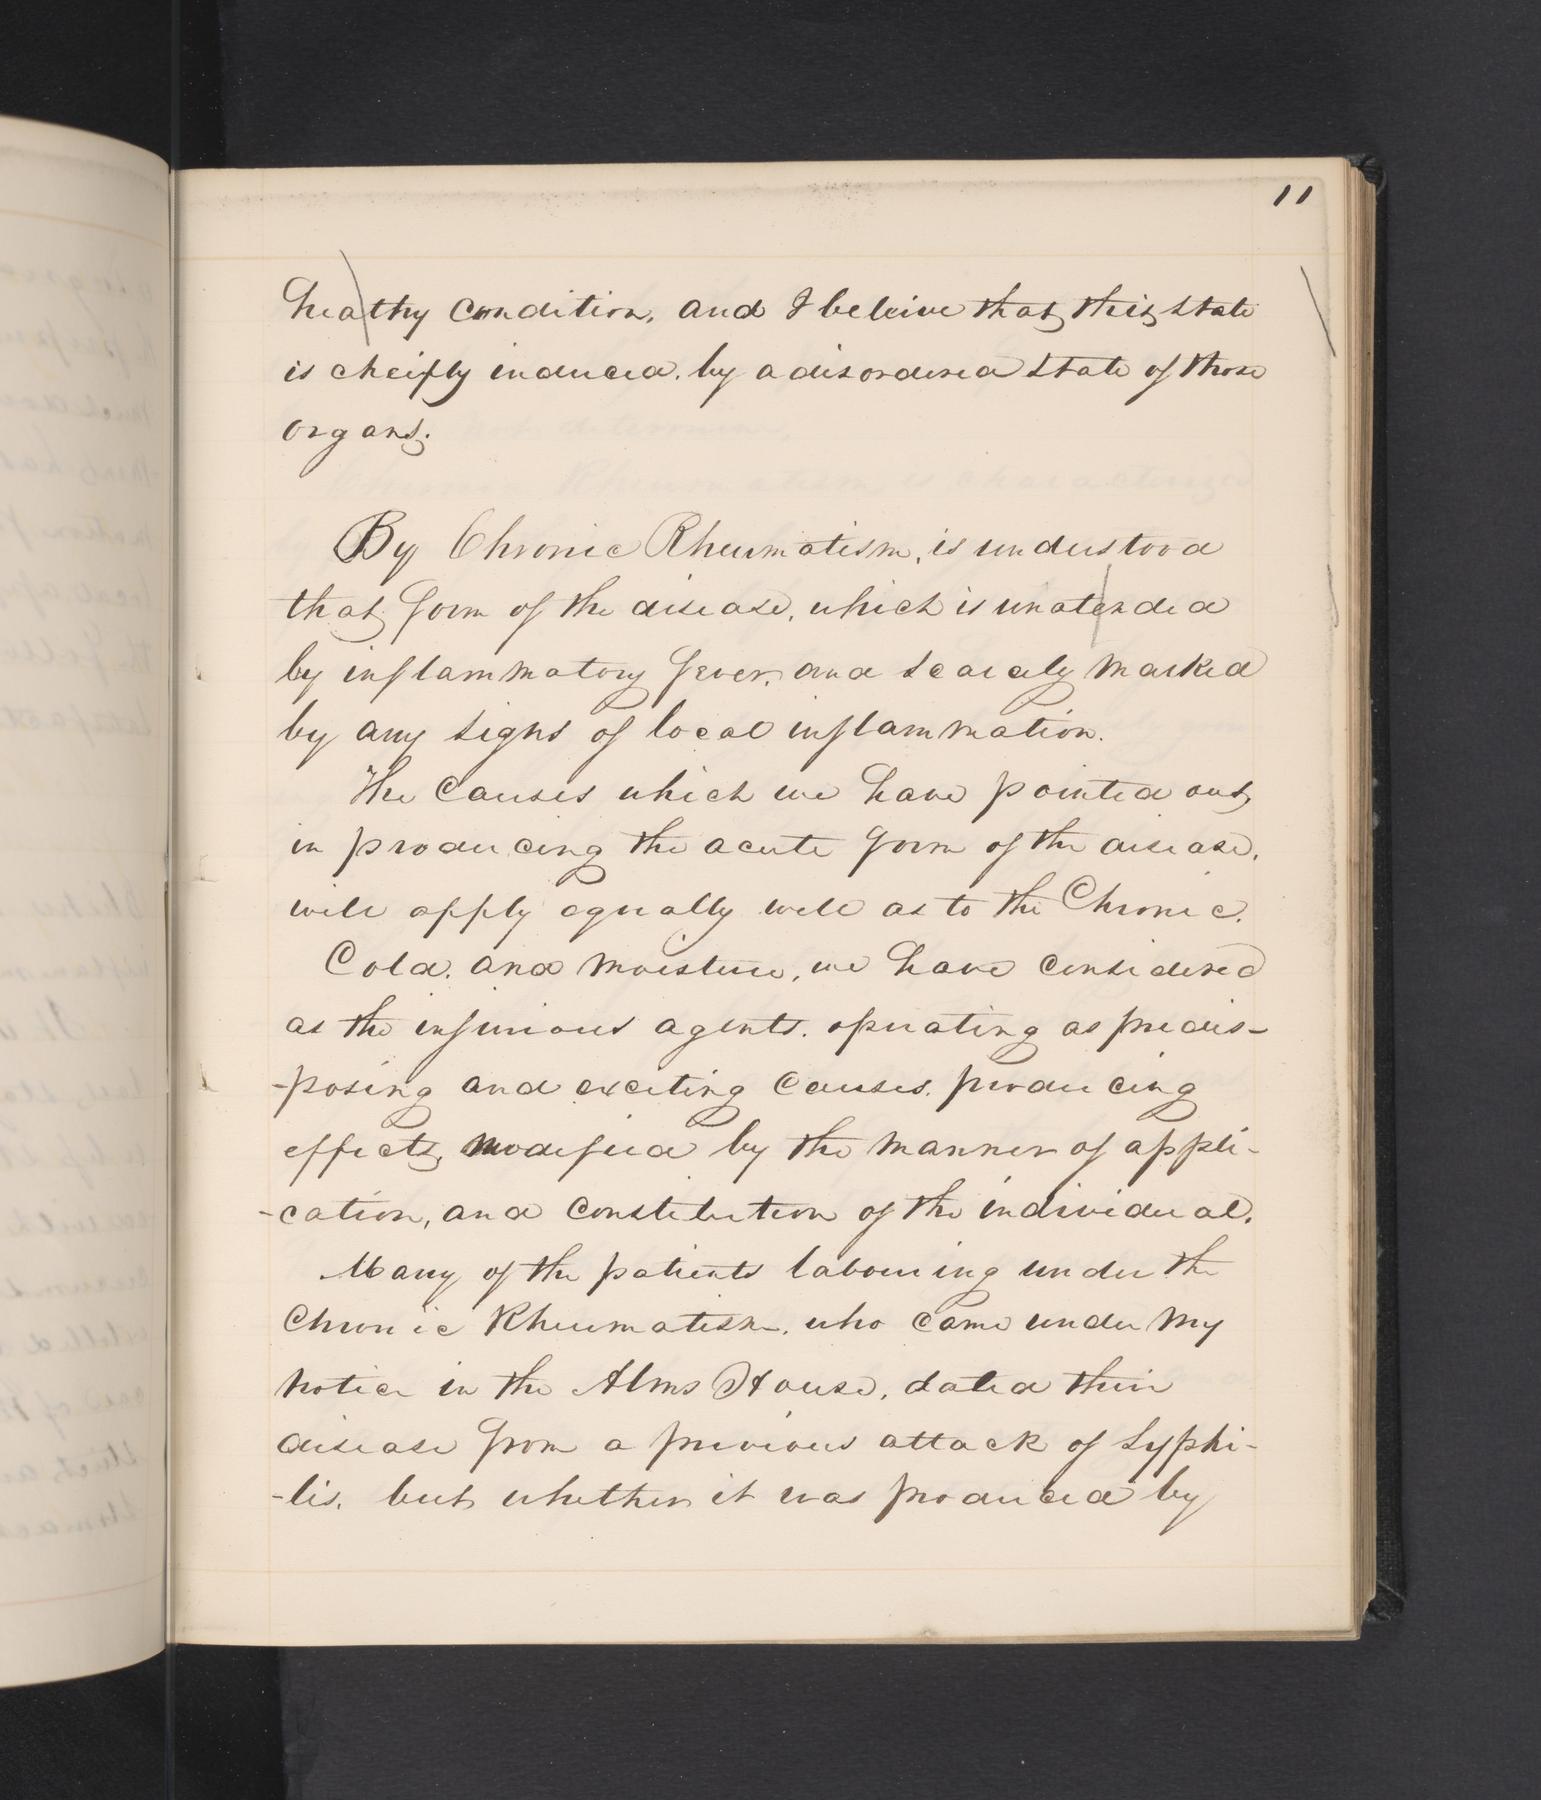 11
heathy condition, and I beleive that this state
is cheifly induced, by a disordered state of those
organs.
By Chronic Rheumatism, is understood
that form of the disease, which is unatended
by inflammatory fever, and scarcely marked
by any signs of local inflammation.
The Causes which we have pointed out
in producing the acute form of the disease,
will apply equally well as to the Chronic.
Cold, and moisture, we have considered
as the injurious agents, operating as predis-
-posing and exciting Causes, producing
effects, modified by the manner of appli-
-cation, and constitution of the individual.
Many of the patients labouring under the
Chronic Rheumatism, who came under my
notice in the Alms House, dated their
disease from a previous attack of Syphi-
-lis, but whether it was produced by